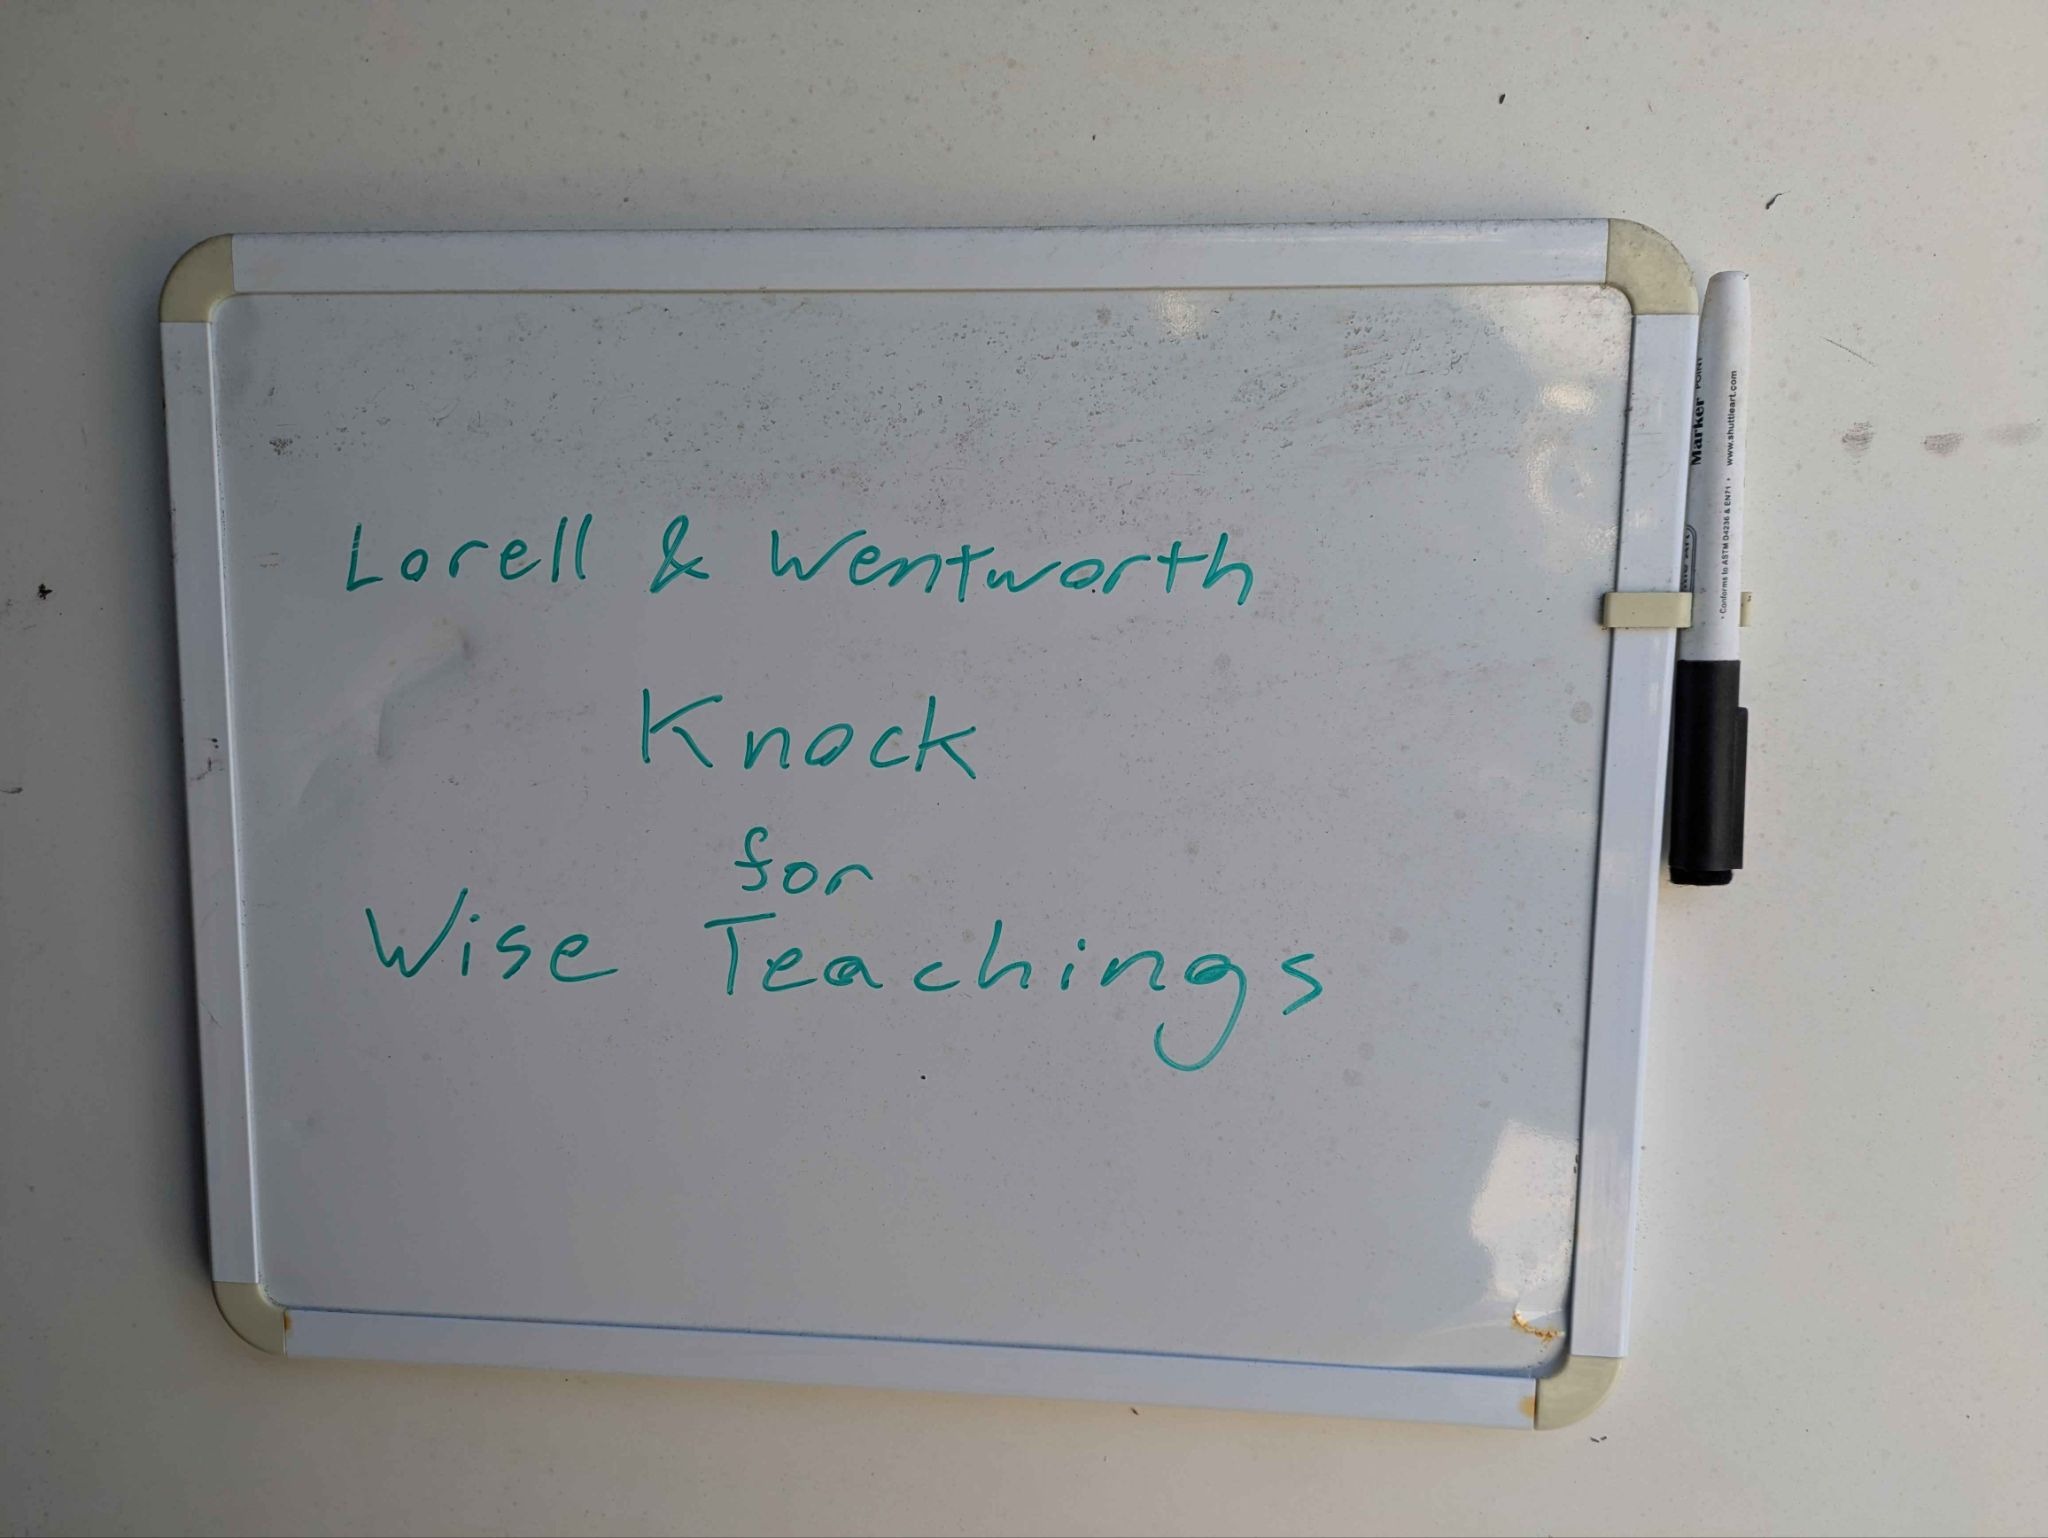 Lorell & Wentworth
Knock
for
Wise Teachings
Marker POINT
www.shuttleart.com
• Conforms to ASTM D4236 & EN71 •